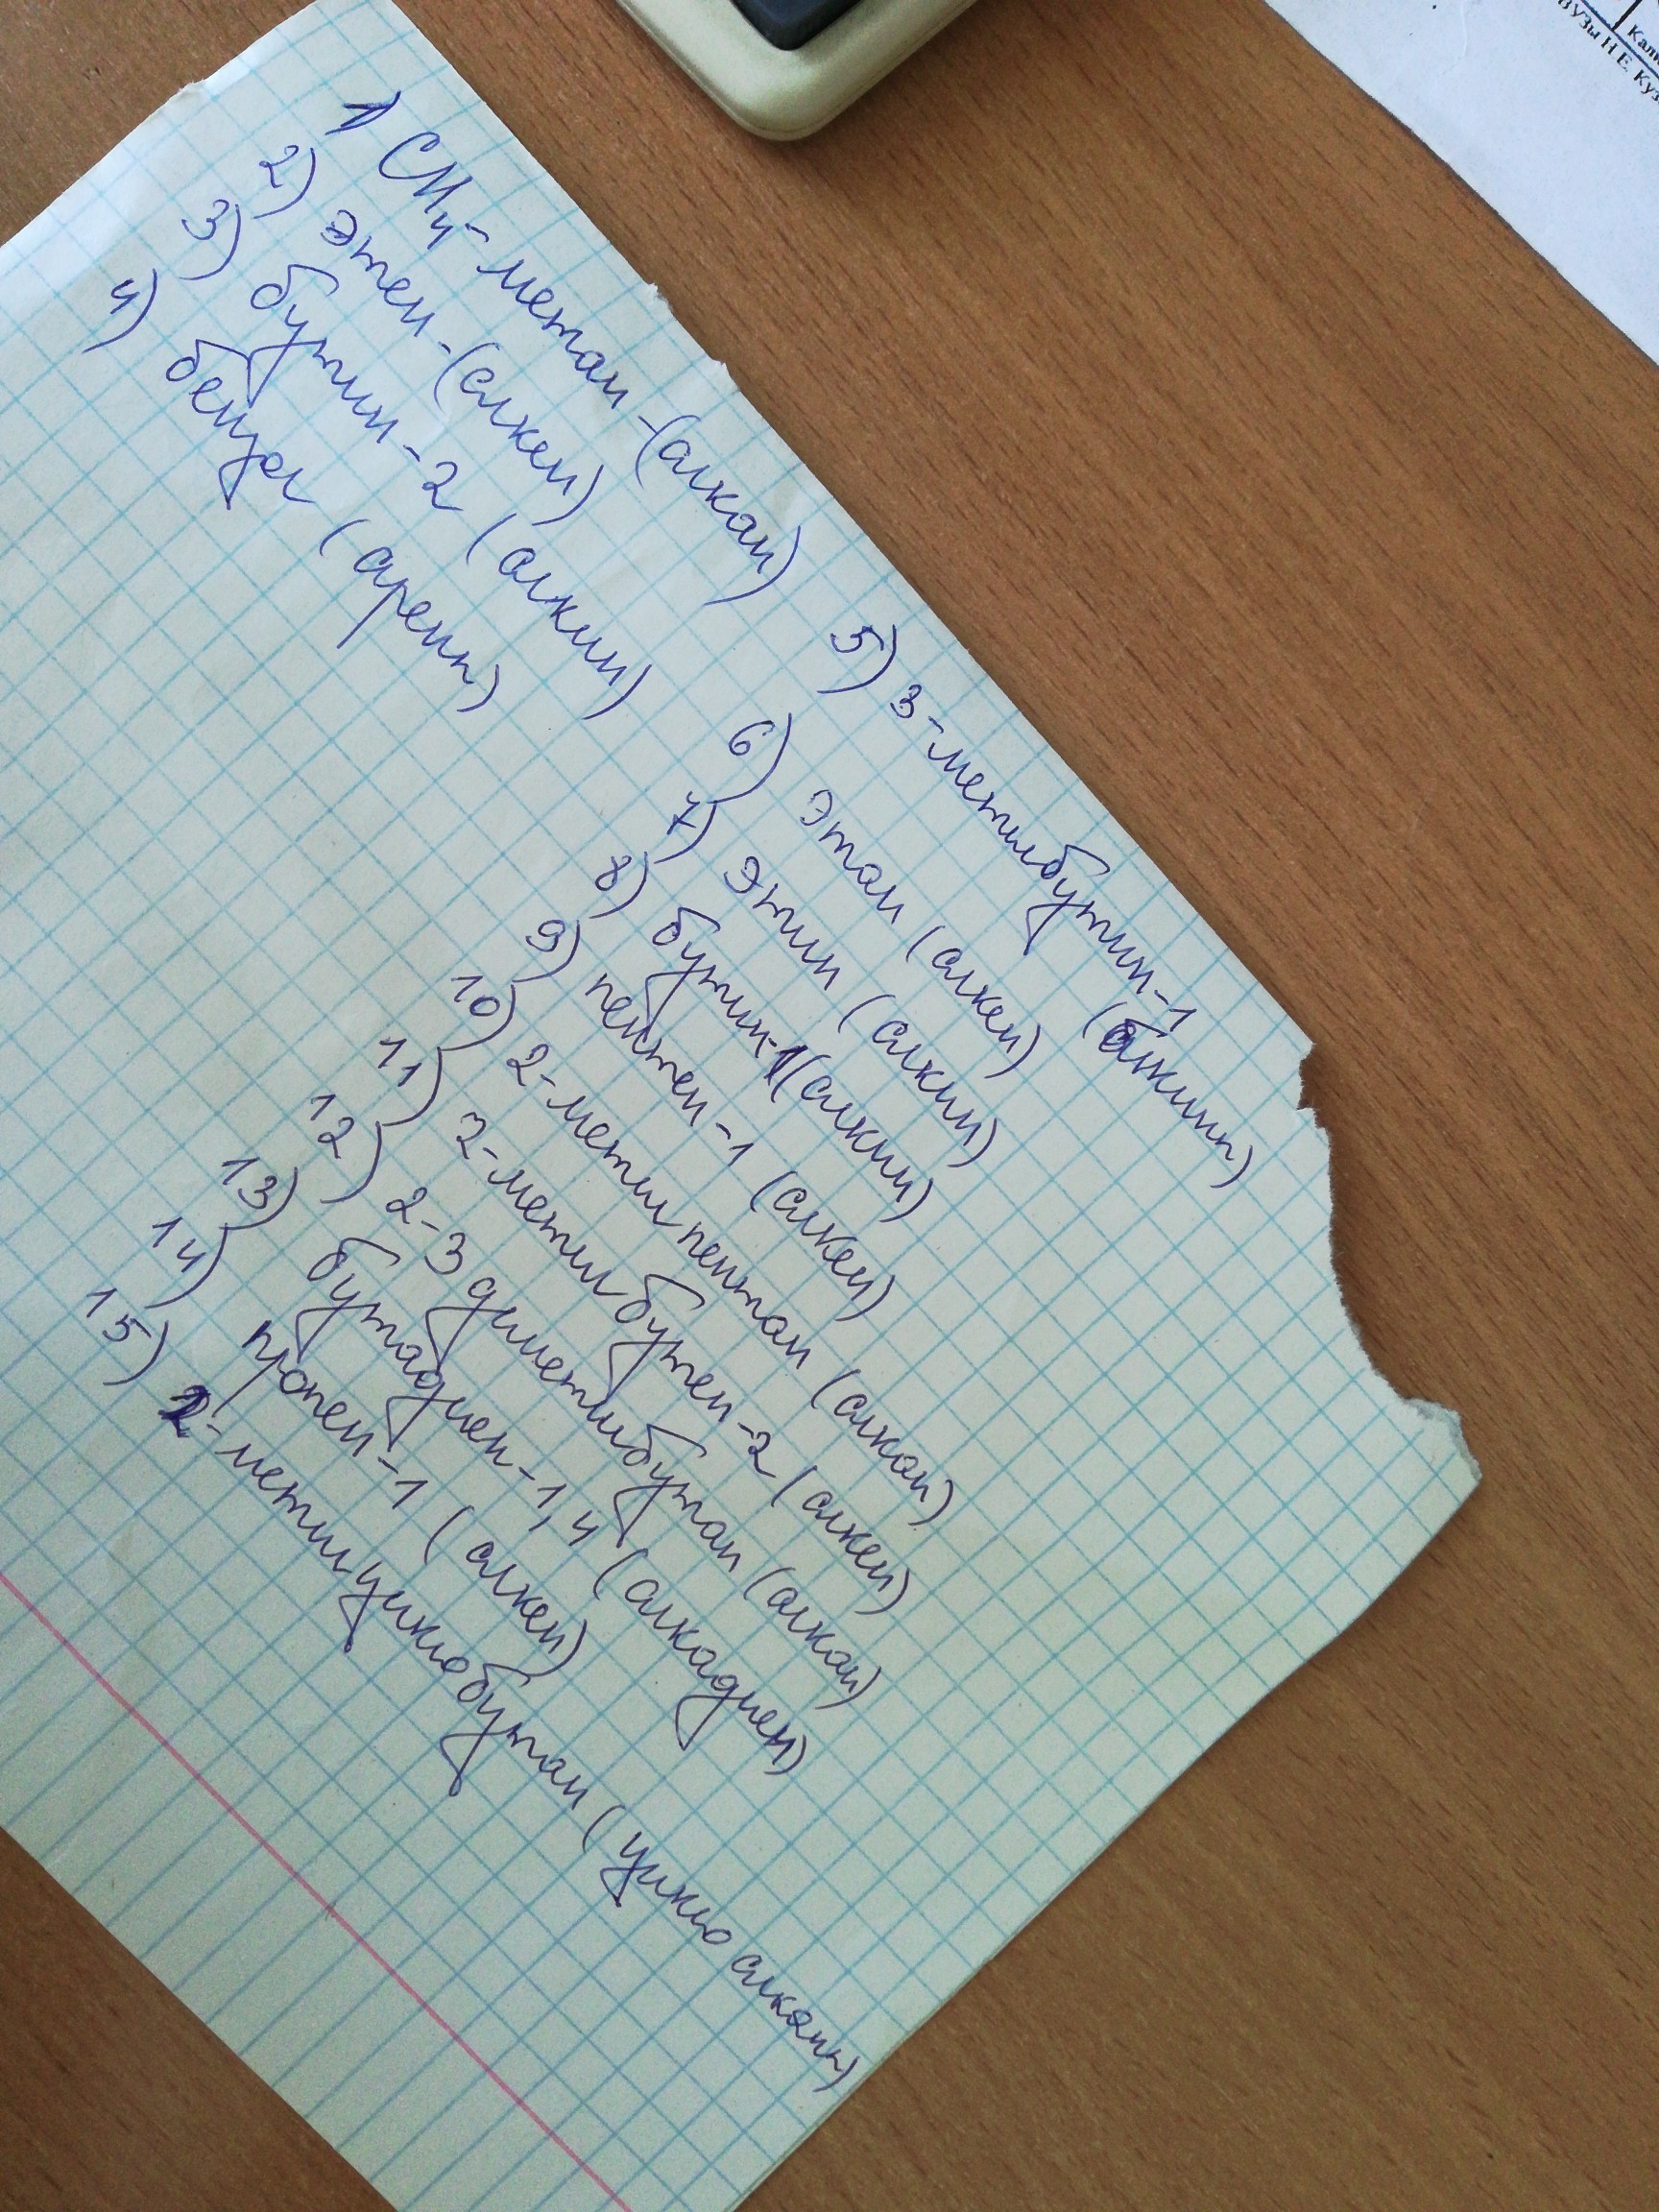 1) CH4 - метан - (алкан)
2) этен - (алкен)
3) бутин - 2 (алкин)
4) бензол (арены)
5) 3-метилбутин-1 (алкины)
6) этан (алкен)
7) этин (алкин)
8) бутин-1 (алкин)
9) пентен-1 (алкен)
10) 2-метилпентан (алкан)
11) 2-метилбутен-2 (алкен)
12) 2-3 диметилбутан (алкан)
13) бутадиен-1,4 (алкадиен)
14) пропен-1 (алкен)
15) 2-метилциклобутан (циклоалканы)
ВУЗы Н.Е. Куз